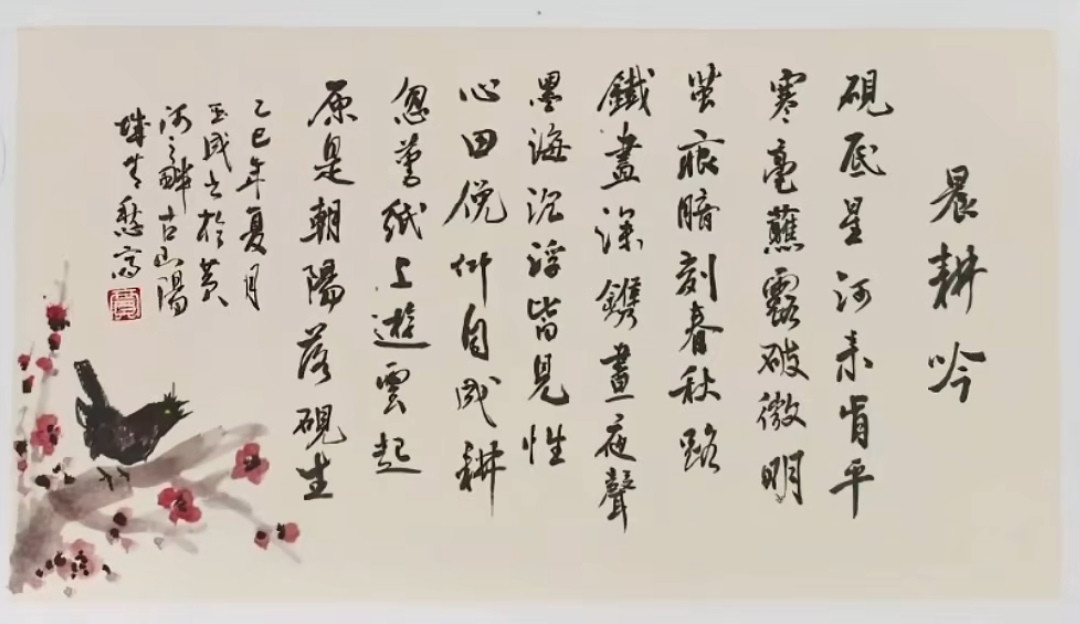 晨耕吟
硯底星河未肯平
寒毫蘸露破微明
螢痕暗刻春秋路
鐵畫深鐫晝夜聲
墨海沉浮皆見性
心田俛仰自成耕
忽驚紙上遊雲起
原是朝陽落硯生
乙巳年夏月
玉成书於黄
河之畔古山陽
城愁齋